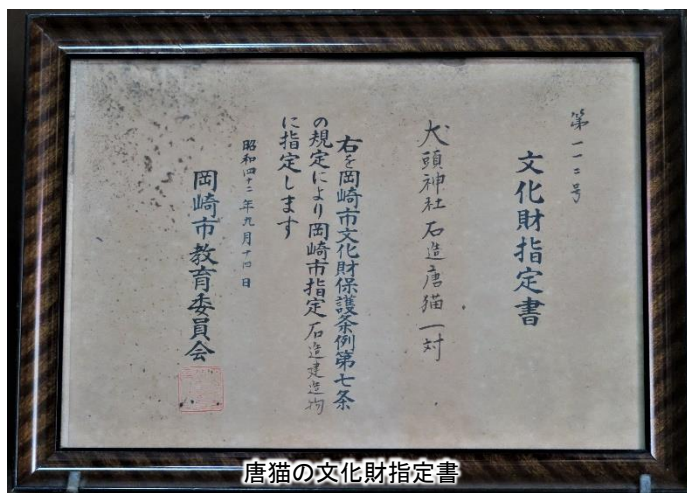 第一一二号
文化財指定書
犬頭神社石造唐猫一対
右を岡崎市文化財保護条例第七条
の規定により岡崎市指定石造建造物
に指定します
昭和四十二年九月十四日
岡崎市教育委員会
唐猫の文化財指定書